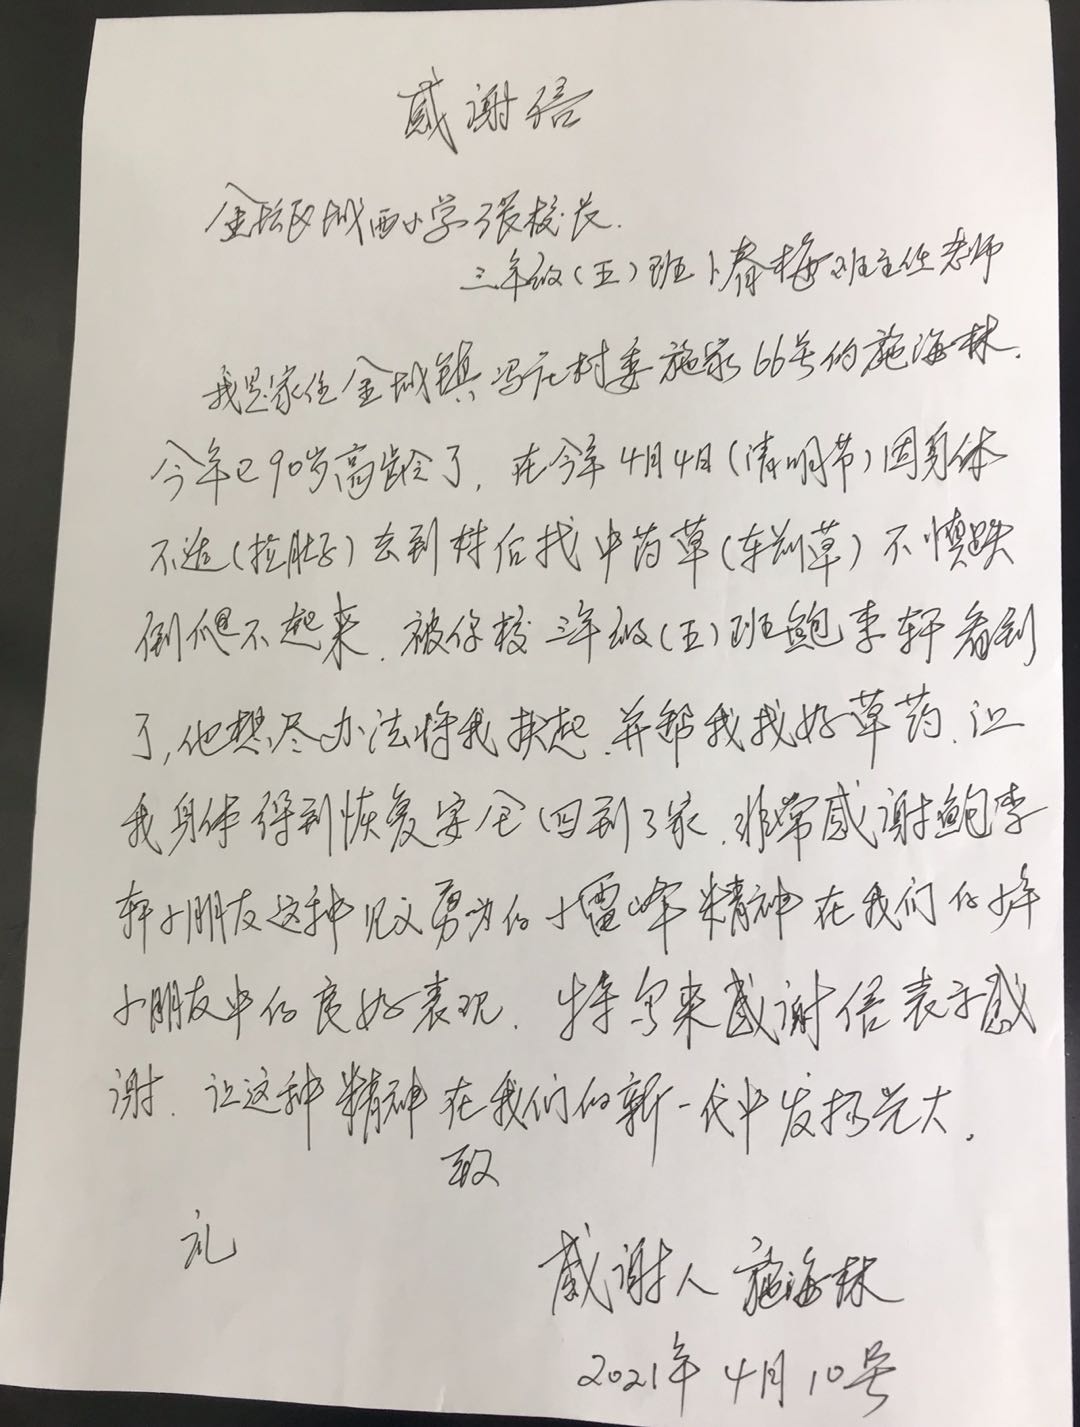 感谢信
金坛区城西小学张校长.
三年级(五)班卜春梅班主任老师
我是家住金城镇冯庄村委施家66号的施海林.
今年已90岁高龄了,在今年4月4日(清明节)因身体
不适(拉肚子)去到村后找中药草(车前草)不慎跌
倒爬不起来.被你校三年级(五)班鲍李轩看到
了,他想尽办法将我扶起.并帮我找好草药.让
我身体得到恢复安全回到了家.非常感谢鲍李
轩小朋友这种见义勇为的小雷峰精神在我们的少年
小朋友中的良好表现.特写来感谢信表示感
谢.让这种精神在我们的新一代中发扬光大.
致
礼
感谢人施海林
2021年4月10号